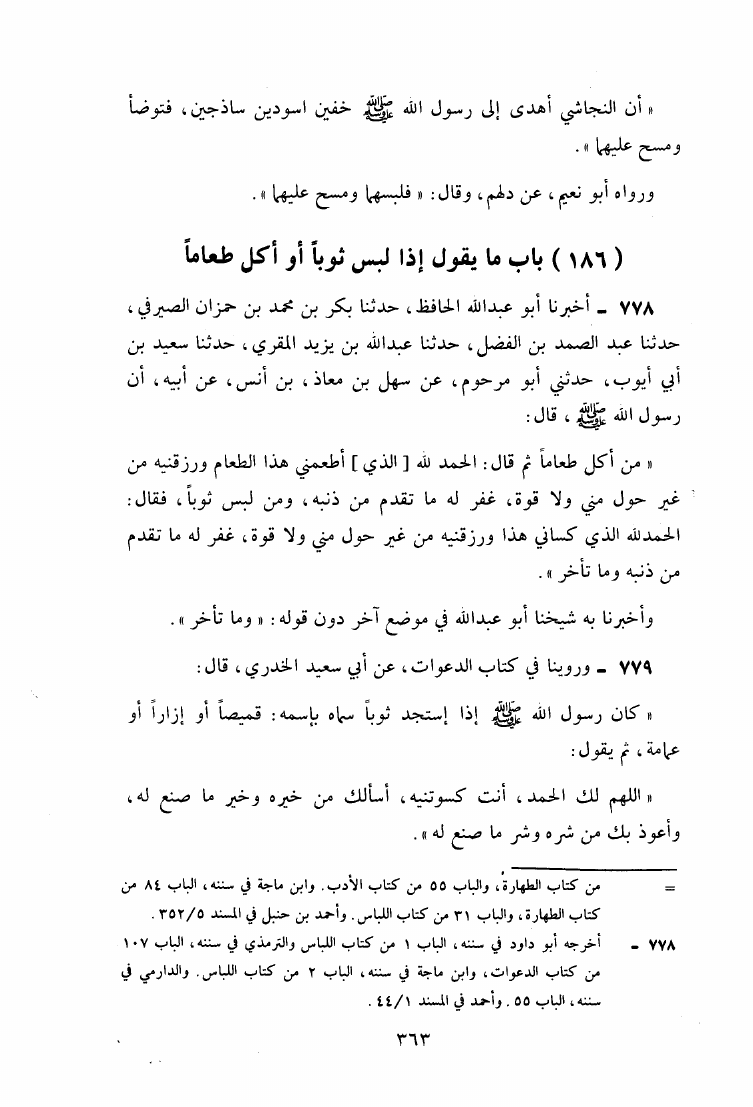 « أن النجاشي أهدى إلى رسول الله ﷺ خفين اسودين ساذجين، فتوضأ
ومسح عليهما ».
ورواه أبو نعيم، عن دلهم، وقال: « فلبسهما ومسح عليهما ».
( ١٨٦ ) باب ما يقول إذا لبس ثوباً أو أكل طعاماً
٧٧٨ ـ أخبرنا أبو عبدالله الحافظ، حدثنا بكر بن محمد بن حمزان الصيرفي،
حدثنا عبد الصمد بن الفضل، حدثنا عبدالله بن يزيد المقري، حدثنا سعيد بن
أبي أيوب، حدثني أبو مرحوم، عن سهل بن معاذ، بن أنس، عن أبيه، أن
رسول الله ﷺ، قال:
« من أكل طعاماً ثم قال: الحمد لله [ الذي ] أطعمني هذا الطعام ورزقنيه من
غير حول مني ولا قوة، غفر له ما تقدم من ذنبه، ومن لبس ثوباً، فقال:
الحمدلله الذي كساني هذا ورزقنيه من غير حول مني ولا قوة، غفر له ما تقدم
من ذنبه وما تأخر ».
وأخبرنا به شيخنا أبو عبدالله في موضع آخر دون قوله: « وما تأخر ».
٧٧٩ ـ وروينا في كتاب الدعوات، عن أبي سعيد الخدري، قال:
« كان رسول الله ﷺ إذا إستجد ثوباً سماه بإسمه: قميصاً أو إزاراً أو
عمامة، ثم يقول:
« اللهم لك الحمد، أنت كسوتنيه، أسألك من خيره وخير ما صنع له،
وأعوذ بك من شره وشر ما صنع له ».
= من كتاب الطهارة، والباب ٥٥ من كتاب الأدب. وابن ماجة في سننه، الباب ٨٤ من
كتاب الطهارة، والباب ٣١ من كتاب اللباس. وأحمد بن حنبل في المسند ٣٥٢/٥.
٧٧٨ ـ أخرجه أبو داود في سننه، الباب ١ من كتاب اللباس والترمذي في سننه، الباب ١٠٧
من كتاب الدعوات، وابن ماجة في سننه، الباب ٢ من كتاب اللباس. والدارمي في
سننه، الباب ٥٥. وأحمد في المسند ٤٤/١.
٣٦٣